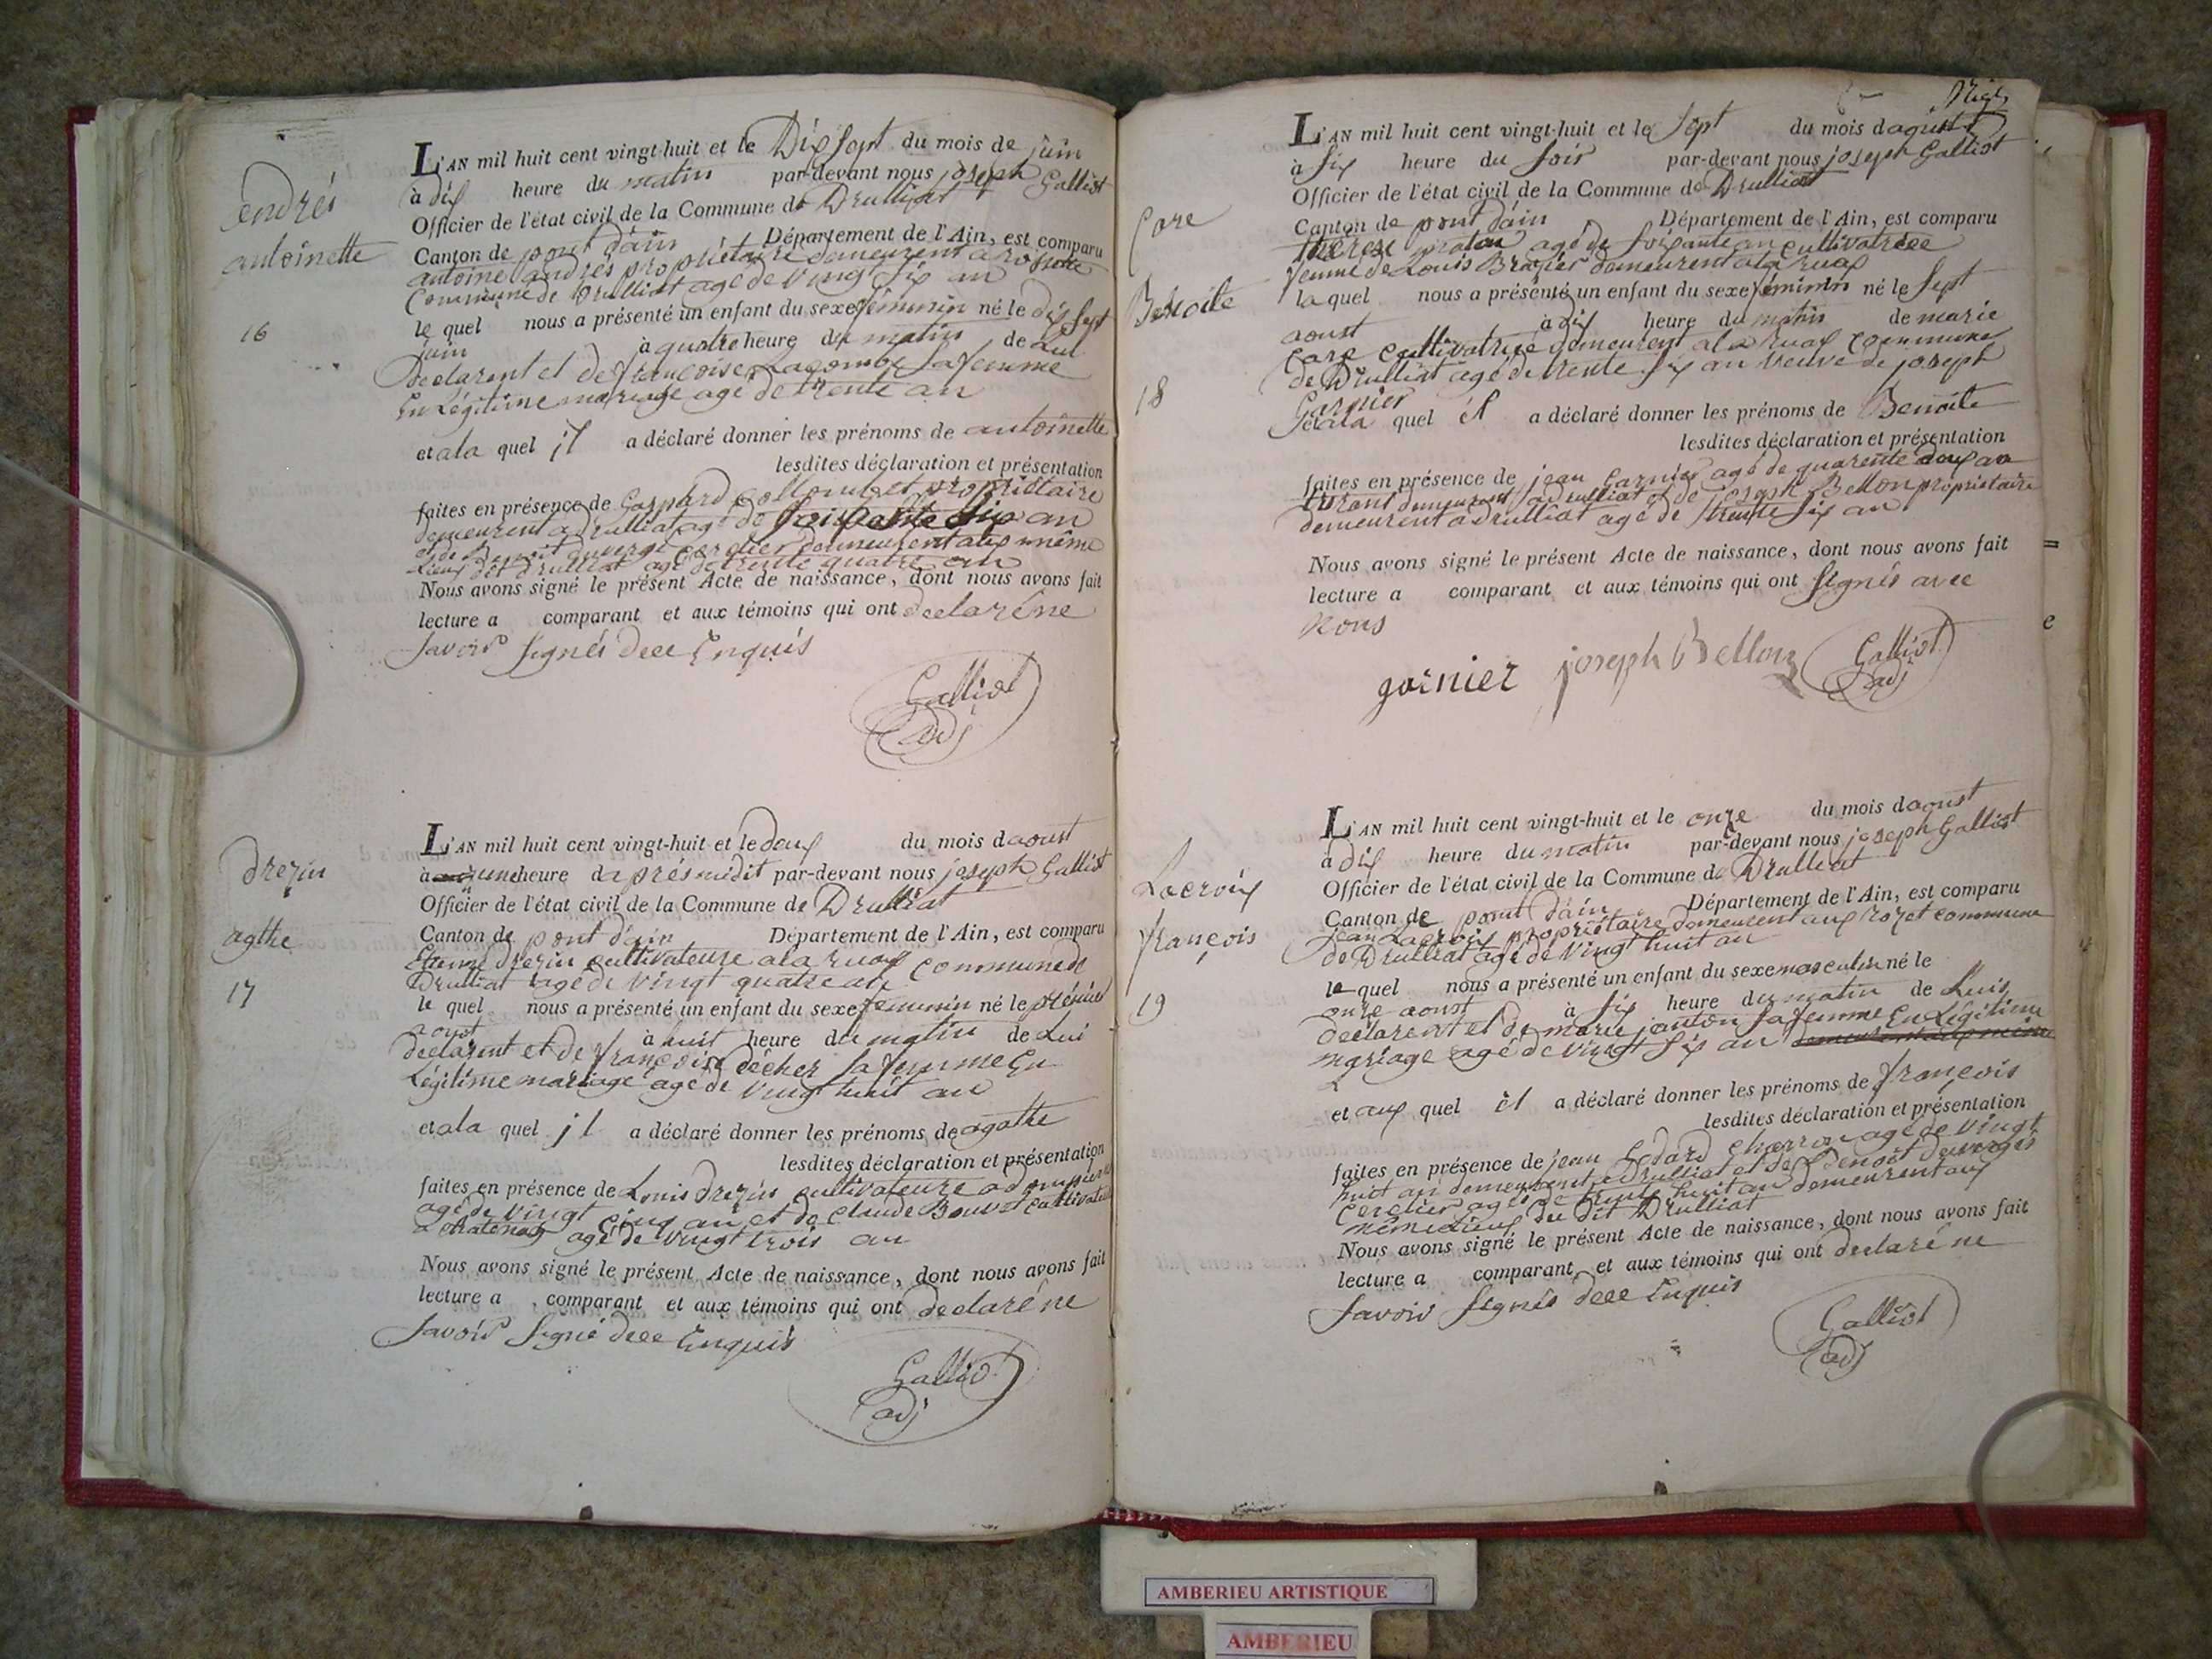 endrés
antoinette
16
L'AN mil huit cent vingt-huit et le Dix sept du mois de juin
à dix heure du matin par-devant nous joseph Galliot
Officier de l'état civil de la Commune de Drulliat
Canton de pont dáin Département de l'Ain, est comparu
antoine andrés propriétaire demeurent a
Commune de Drulliat agé de vingt six an
le quel nous a présenté un enfant du sexe feminin né le dix sept
juin à quatre heure du matin de Lui
Declarent et de françoise Lacombe Sa femme
En Légitime mariage agé de trente an
et ala quel il a déclaré donner les prénoms de antoinette
lesdites déclaration et présentation
faites en présence de Gaspard Collombet propriétaire
demeurent a drulliat agé de Soisante six an
et de Benoit duvergé Cerclier demeurent aux même
Lieux dit drulliat agé de trente quatre an
Nous avons signé le présent Acte de naissance, dont nous avons fait
lecture a comparant et aux témoins qui ont declaréne
Savoir Signés dece Enquis
Galliot
adj
drezin
agthe
17
L'AN mil huit cent vingt-huit et le deux du mois daoust
à une heure daprés midit par-devant nous joseph Galliot
Officier de l'état civil de la Commune de Drulliat
Canton de pont d'ain Département de l'Ain, est comparu
Etienne drezin cultivateure ala ruaz Commune de
Drulliat agé de vingt quatre an
le quel nous a présenté un enfant du sexe feminin né le prémier
aoust à huit heure du matin de Lui
declarent et de françoise décher Sa femme En
Légitime mariage agé de vingt huit an
et ala quel jl a déclaré donner les prénoms de agathe
lesdites déclaration et présentation
faites en présence de Louis drezin cultivateure a dompierre
agé de vingt cinq an et de Claude Bouvet Cultivateur
a Chatenay agé de vingt trois an
Nous avons signé le présent Acte de naissance, dont nous avons fait
lecture a comparant et aux témoins qui ont declaréne
Savoir Signé dece Enquis
Galliot
adj
Care
Benoite
18
L'AN mil huit cent vingt-huit et le Sept du mois daoust
à Six heure du Soir par-devant nous joseph Galliot
Officier de l'état civil de la Commune de Drulliat
Canton de pont dáin Département de l'Ain, est comparu
thérése agé de Soisante an cultivatrice
femme de Louis Brazier demeurent ala ruaz
la quel nous a présenté un enfant du sexe feminin né le Sept
aoust à dix heure du matin de marie
Care Cultivatrice demeurent ala ruaz Commune
de Drulliat agé de trente Six an veuve de joseph
Garnier
et ala quel il a déclaré donner les prénoms de Benoite
lesdites déclaration et présentation
faites en présence de jean Garnier agé de quarente deux an
demeurent a drulliat et de joseph Bellon propriétaire
demeurent a drulliat agé de trente Six an
Nous avons signé le présent Acte de naissance, dont nous avons fait
lecture a comparant et aux témoins qui ont Signés avec
Nous
garnier joseph Bellon Galliot
adj
Lacroix
françois
19
L'AN mil huit cent vingt-huit et le onze du mois daoust
à dix heure du matin par-devant nous joseph Galliot
Officier de l'état civil de la Commune de Drulliat
Canton de pont dáin Département de l'Ain, est comparu
Jean Lacroix propriétaire demeurent aux rozet commune
de Drulliat agé de vingt huit an
le quel nous a présenté un enfant du sexe masculin né le
onze aoust à Six heure du matin de Luis
declarent et de marie janton Sa femme En Légitime
mariage agé de vingt Six an
et aux quel il a déclaré donner les prénoms de françois
lesdites déclaration et présentation
faites en présence de jean Charron agé de vingt
huit an demeurent a Drulliat et de Benoit duvergés
Cerclier agés de trente huit an demeurent aux
même Lieux du dit Drulliat
Nous avons signé le présent Acte de naissance, dont nous avons fait
lecture a comparant et aux témoins qui ont declaréne
Savoir Signés dece Enquis
Galliot
adj
AMBERIEU ARTISTIQUE
AMBERIEU